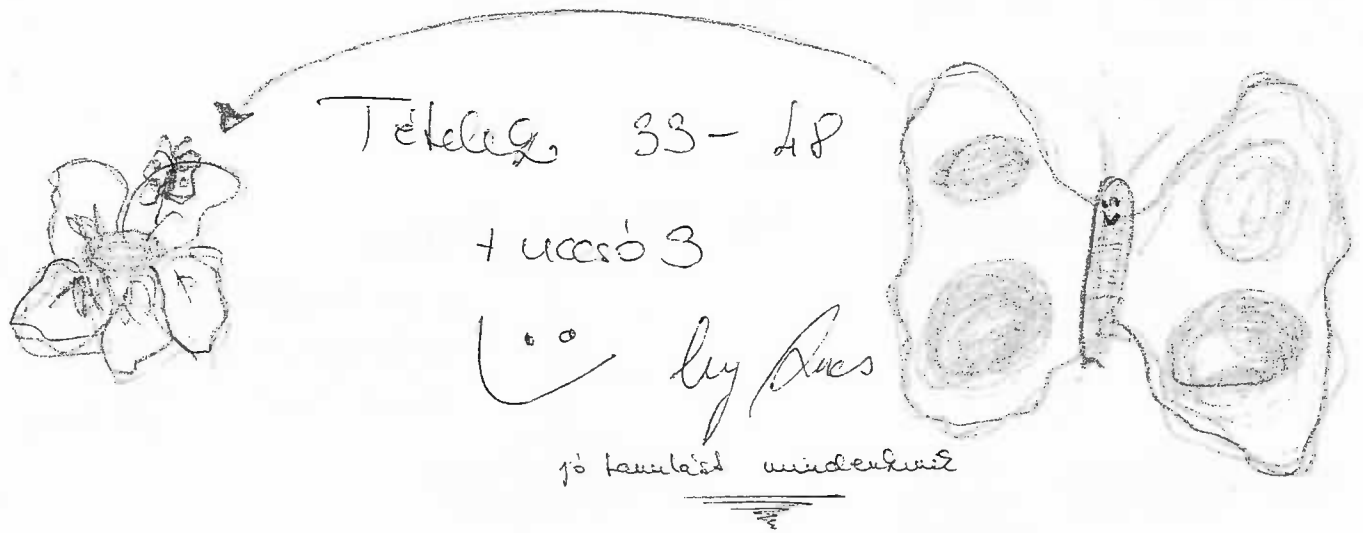 Tételek 33-48
+ uccsó 3
by
jó tanulást mindenkinek